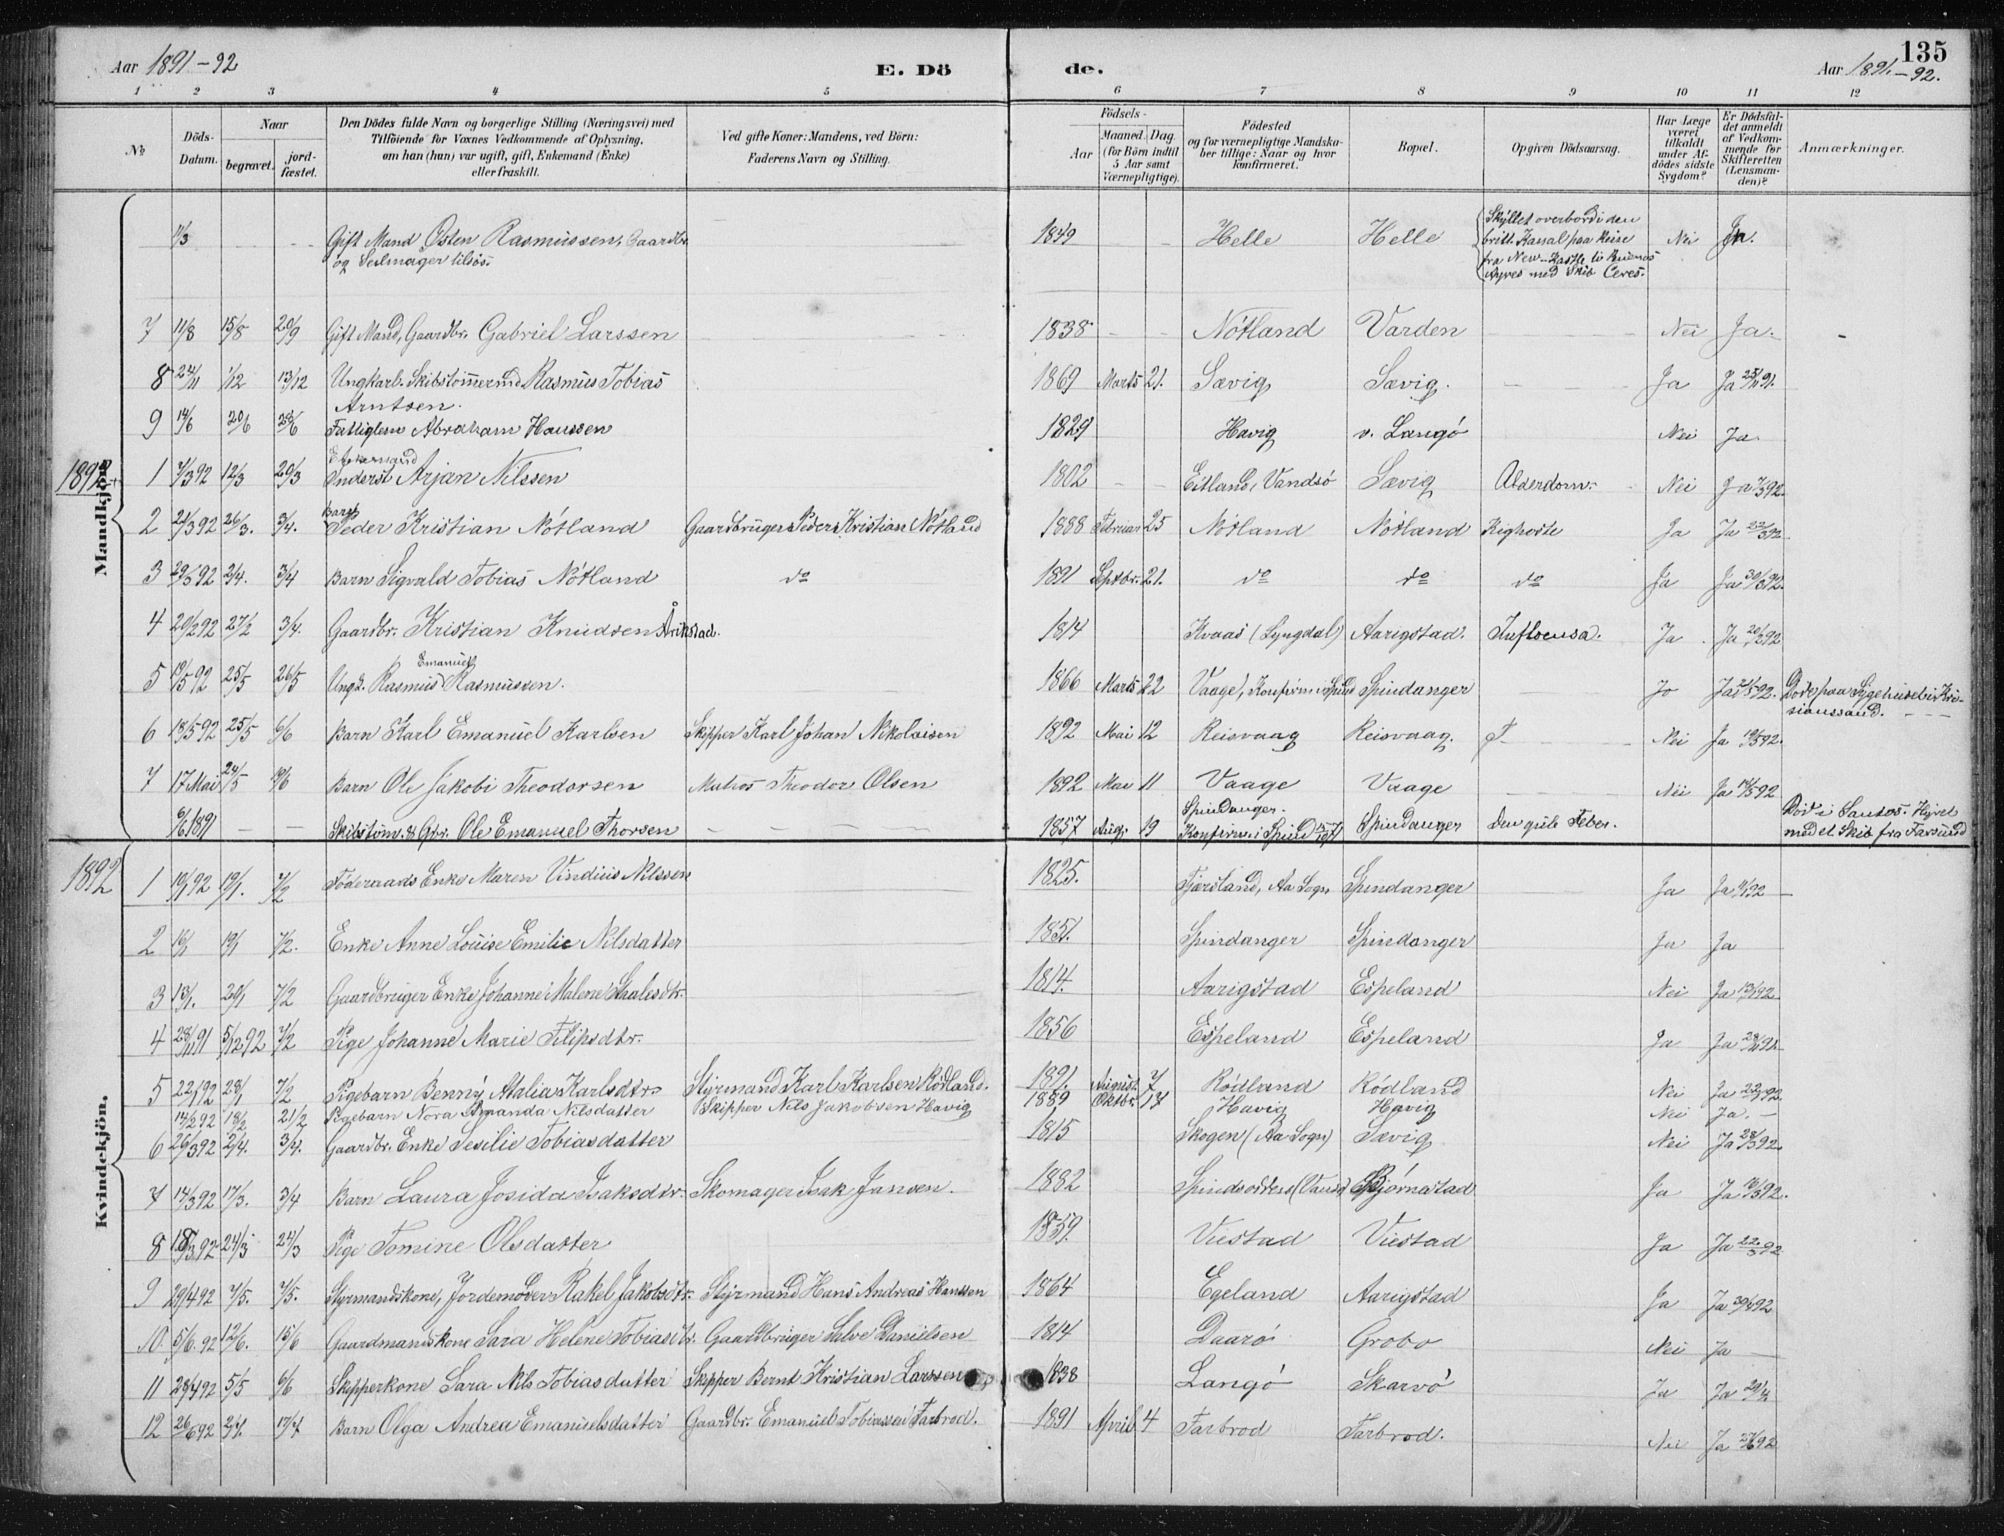 135
Aar 1891-92
E. Dö
de.
Aar 1891-92.
1 2 3 4 5 6 7 8 9 10 11 12
No
Döds-Datum.
Naar
begravet.
jord-fæstet.
Den Dödes fulde Navn og borgerlige Stilling (Næringsvei) med
Tilföiende for Voxnes Vedkommende af Oplysning,
om han (hun) var ugift, gift, Enkemand (Enke)
eller fraskilt.
Ved gifte Koner: Mandens, ved Börn:
Faderens Navn og Stilling.
Födsels-
Aar
Maaned. Dag.
(for Börn indtil
5 Aar samt
Værnepligtige).
Födested
og for værnepligtige Mandska-
ber tillige: Naar og hvor
konfirmeret.
Bopæl.
Opgiven Dödsaarsag.
Har Læge
været
tilkaldt
under Af-
dödes sidste
Sygdom?
Er Dödsfal-
det anmeldt
af Vedkom-
mende for
Skifteretten
(Lensman-
den)?
Anmærkninger.
Mandkjön.
Gift Mand Østen Rasmussen, Gaardbr. 1849 Helle Helle Skyllet overbord i den Nei Ja.
og Seilmager tilsös. britt. Kanal paa Reise
fra New-Kastle til Buenos
Ayres med Skib Ceres.
7 11/8 15/8 20/9 Gift Mand, Gaardbr. Gabriel Larssen 1838 Nótland Varden Nei Ja.
8 24/11 1/12 13/12 Ungkarl. Skibstömmermd Rasmus Tobias 1869 Marts 21. Sævig Sævig. Ja Ja 25/11 91.
Arntsen.
9 14/6 20/6 28/6 Fattiglem Abraham Hanssen 1829 Havig v. Langó Nei Ja
1892
Enkemand
1 7/3 92 12/3 20/3 Inderst Arjan Nilssen 1802 Eitland, Vandsö Sævig Alderdom. Nei Ja 7/3 92.
Barn
2 21/3 92 26/3. 3/4. Peder Kristian Nótland Gaardbruger Peder Kristian Nótland 1888 Februar 25 Nótland Nótland Kighoste Ja Ja 22/3 92
3 29/3 92 2/4. 3/4 Barn Sigvald Tobias Nótland do 1891 Septbr. 21. do do do Ja Ja 30/3 92.
4 20/2 92 27/2 3/4. Gaardbr. Kristian Knudsen Årikstad. 1814 Kvaas (Lyngdal) Aarigstad. Influensa. Ja Ja 20/2 92
Emanuel
5 18/5 92 25/5 26/5 Ungk. Rasmus Rasmussen. 1866 Marts 22 Vaage, Konfirm. i Spind Spindanger Ja Ja 21/5 92. Döde paa Sygehuset i Kri-
sianssand.
6 13/5 92 25/5 6/6 Barn Karl Emanuel Karlsen Skipper Karl Johan Nikolaisen 1892 Mai 12 Reisvaag Reisvaag. Nei Ja 19/5 92.
7 17 Mai 24/5 19/6 Barn Ole Jakobi Theodorsen Matros Theodor Olsen 1892 Mai 11 Vaage Vaage Nei Ja 19/5 92
6/6 1891 Skibstöm. & Gbr. Ole Emanuel Thorsen 1857 Aug. 19 Spindanger. Konfirm. i Spind Spindanger Den gule Feber. Död i Santos. Hyret
med et Skib fra Farsund
Kvindekjön.
1892
1 10/1 92 19/1. 7/2 Föderaads Enke Maren Vindius Nilssen 1825. Fjærsland, Aa Sogn Spindanger Ja Ja 11/1 92
2 16/1 19/1 7/2. Enke Anne Louise Emilie Nilsdatter 1851. Spindanger Spindanger Ja Ja
3 13/1. 20/1 7/2 Gaardbruger Enke Johanne Malene Staalesdtr. 1814. Aarigstad Espeland Nei Ja 13/1 92
4 28/11 91 5/12 92 7/2 Pige Johanne Marie Filipsdtr. 1856 Espeland Espeland Ja Ja 28/11 91.
5 22/1 92 28/1 7/2 Pigebarn Benny Atalia Karlsdtr. Styrmand Karl Karlsen Ródland. 1891. August 7 Ródland Ródland Nei Ja 22/1 92.
14/2 92 18/2 21/2 Pigebarn Nora Amanda Nilsdatter Skipper Nils Jakobsen Havig 1889 Oktbr. 17 Havig Havig Nei Ja.
6 26/3 92 2/4. 3/4. Gaardbr. Enke Sesilie Tobiasdatter 1815 Skogen (Aa Sogn) Sævig Nei Ja 28/3 92.
7 14/3 92 17/3. 3/4 Barn Laura Josida Isaksdtr. Skomager Isak Jansen. 1882 Spindsodden (Vanse) Bjórnestad Ja Ja 16/3 92.
8 18/3 92 24/3 24/3 Pige Tomine Olsdatter 1859. Viestad Viestad Ja Ja 22/3 92
9 29/4 92 7/5. 7/5. Styrmandskone, Jordemoder Rakel Jakobsdtr. Styrmand Hans Andreas Hanssen 1864 Egeland Aarigstad Ja Ja 30/4 92
10. 5/6. 92 12/6. 15/6 Gaardmandskone Sara Helene Tobiasdtr. Gaardbruger Salve Danielsen 1814 Daaró Grobo Nei Ja
11 28/4 92 5/5 6/6 Skipperkone Sara Nils Tobiasdatter Skipper Bernt Kristian Larssen 1838 Langó Skarvó Ja Ja 29/4
12 26/6 92 2/7. 17/7 Barn Olga Andrea Emanuelsdatter Gaardbr. Emanuel Tobiassen Farbrod. 1891 April 4 Farbrod Farbrod. Nei Ja 27/6 92